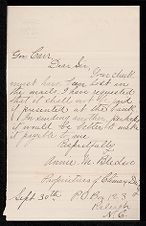 Dear Sir,
Your check
must have been lost in
the mails. I have requested
that it shall not be paid
if presented at the bank
In sending another, perhaps
it would be better to make
it payable to me
Respectfully
Annie M.
Proprietress of
Sept. 30th P.O. Box 123
Raleigh
N.C.